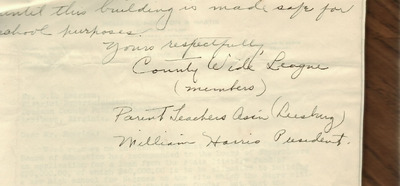 until this building is made safe for
school purposes.
Yours respectfully
County Wide League
(members)
Parent Teachers Assn (Leesburg)
William Harris President.